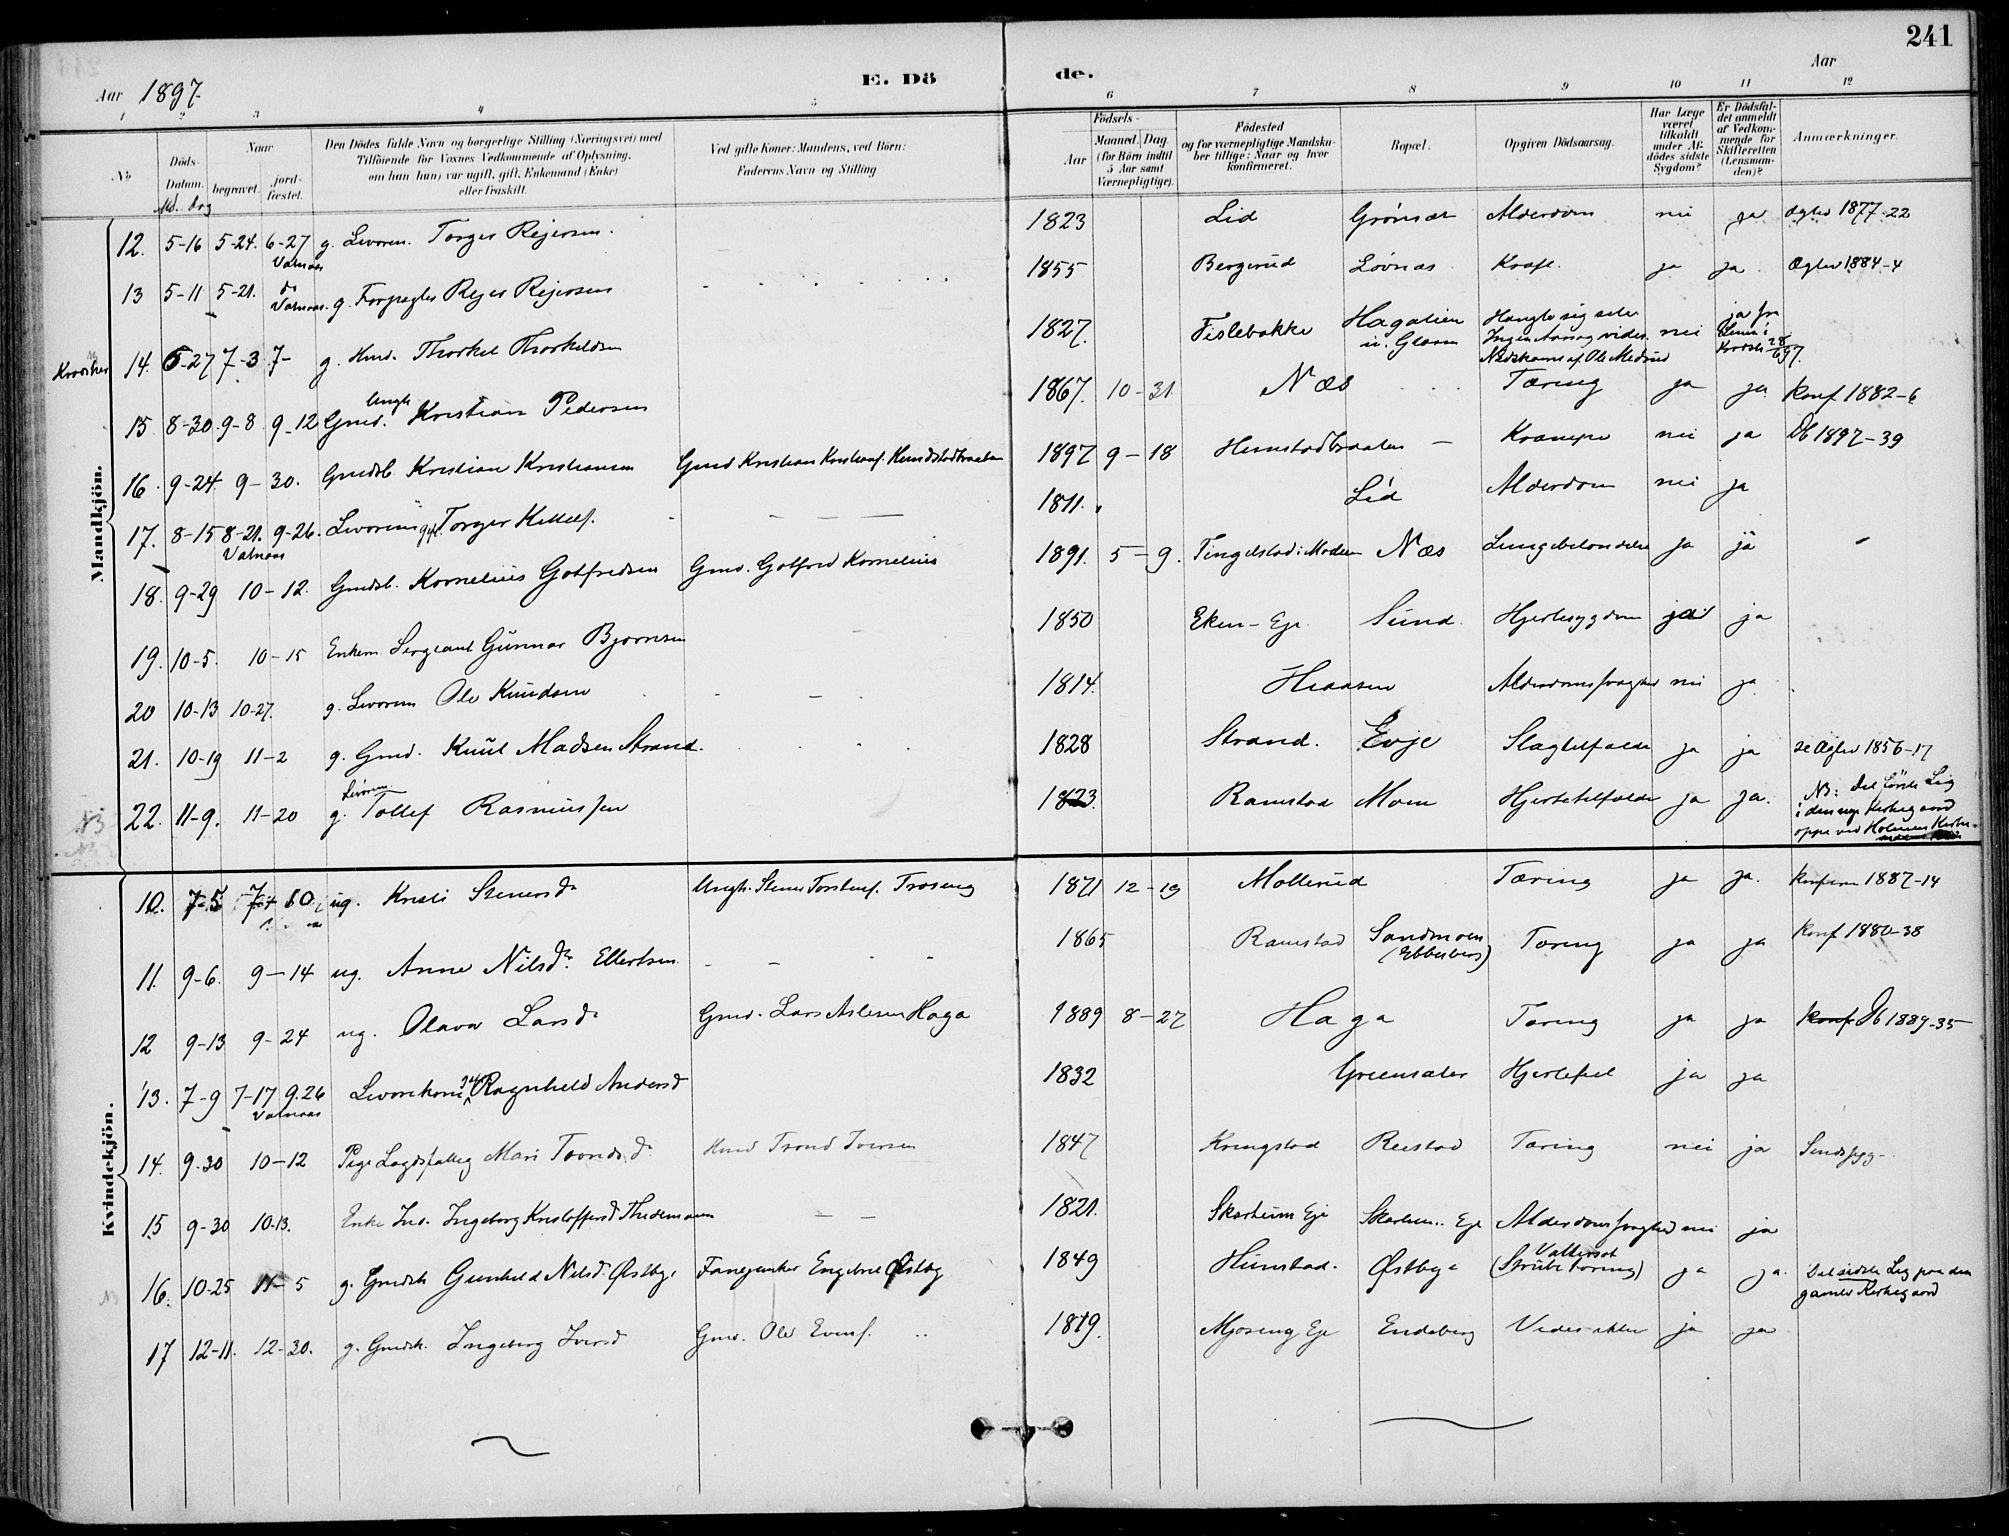 241
Aar 1897.
E. Dö
de.
Aar
1 2 3 4 5 6 7 8 9 10 11 12
No
Döds-
Datum.
Md. dag
Naar
begravet.
jord-
fæstet.
Den Dödes fulde Navn og borgerlige Stilling (Næringsvei) med
Tilföiende for Voxnes Vedkommende af Oplysning,
om han (hun) var ugift, gift, Enkemand (Enke)
eller fraskilt.
Ved gifte Koner: Mandens, ved Börn:
Faderens Navn og Stilling
Födsels-
Aar
Maaned. Dag
(for Börn indtil
5 Aar samt
Værnepligtige).
Födested
og for værnepligtige Mandska-
ber tillige: Naar og hvor
konfirmeret.
Bopæl.
Opgiven Dödsaarsag.
Har Læge
været
tilkaldt
under Af-
dödes sidste
Sygdom?
Er Dödsfal-
det anmeldt
af Vedkom-
mende for
Skifteretten
(Lensman-
den)?
Anmærkninger.
Mandkjön.
12. 5-16 5-24. 6-27 g. Levorem. Torger Rejersen. 1823 Lid Grönsæt Alderdom nei ja Ægtev 1877-22
13 5-11 5-21. do g. Forpagter Rejer Rejersen 1855 Bergerud Lövnæs Kræft. ja ja Ægtev 1884-4
14. 5-27 7-3 7- g. Hmd. Thorkel Thorkeldsen 1827. Fislebakke Hagalien Hængte sig selv nei ja
15 8-30 9-8 9-12 Gmd. Ungk Kristian Pedersen 1867. 10-31 Næs Tæring ja ja Konf 1882-6
16. 9-24. 9-30. Gmdsb. Kristian Kristiansen Gmd Kristian Kristians. Hemstadbraaten 1897 9-18 Hemstadbraaten - Krampe nei ja Db 1897-39
17. 8-15 8-21. 9-26. Levorem gift. Torger Kittels. 1811. Lid Alderdom nei ja
18. 9-29 10-12. Gmdsb. Kornelius Gotfredsen Gmd. Gotfred Kornelius 1891. 5-9. Tingelstad i Modum Næs Lungebetændelse ja ja
19. 10-5. 10-15 Enkem. Sergeant Gunnar Bjørnsen 1850 Eken-Eje Sund. Hjertesygdom ja ja
20 10-13 10-27. g. Levorem Ole Knudsen 1814. Haasen Alderdomssvaghed nei ja
21. 10-19 11-2 g. Gmd. Knut Madsen Strand. 1828 Strand. Evje Slagtilfælde ja ja se Ægtev 1856-17
22. 11-9. 11-20 g. Levorem Tollef Rasmussen 1823. Ramstad Moen Hjertetilfælde ja ja. NB: Det förste Lig
i den nye Kirkegaard
oppe ved Holmens Kirke.
Kvindekjön.
10. 7-5 7-10 ug. Kristi Stenersdr Ungk. Stener Torstens. Traseng 1871 12-19 Mollerud Tæring ja ja. Konfirm 1887-14
11. 9-6. 9-14 ug. Anne Nilsdr Ellertsen. 1865 Ramstad Sandmoen Tæring ja ja Konf 1880-38
12 9-13 9-24 ug. Olava Larsdr Gmd. Lars Aslesen Haga 1889 8-27 Haga Tæring ja ja Konf Db 1889-35
13. 7-9 7-17 9.26 Levorekone gift Ragnhild Andersd 1832 Greensæter Hjertefeil ja ja
14. 9.30 10-12 Pige Lægdsfattig Mari Trondsdr Hmd Trond Iversen 1847 Kringstad Reistad Tæring nei ja Sindssyg-
15 9-30 10-13. Enke Ind. Ingeborg Kristoffersd Thidemann 1821. Skarheim Eje Skarheim.. Eje Alderdomssvaghed nei ja
16. 10-25 11-5 g. Gmdk Gunhild Nilsd. Østbye Fanejunker Engebret Østby 1849 Hunstad. Østbye Vattersot
(Strubetæring) ja ja. Det sidste Lig paa den
gamle Kirkegaard
17 12-11. 12-30. g. Gmdk. Ingeborg Iversd Gmd. Ole Evens. 1819. Mjøseng Eje Endeberg Vides ikke ja ja